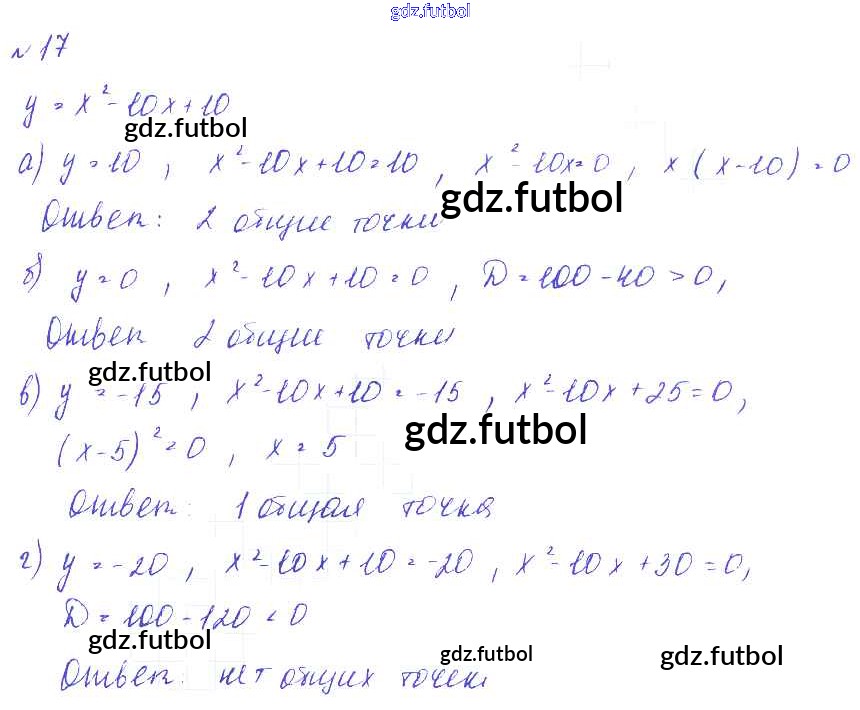 gdz.futbol
№ 17
y = x² - 10x + 10
gdz.futbol
а) y = 10 , x² - 10x + 10 = 10 , x² - 10x = 0 , x ( x - 10 ) = 0
gdz.futbol
Ответ: 2 общие точки
б) y = 0 , x² - 10x + 10 = 0 , D = 100 - 40 > 0,
Ответ 2 общие точки
gdz.futbol
в) y = -15 , x² - 10x + 10 = -15 , x² - 10x + 25 = 0,
gdz.futbol
(x - 5)² = 0 , x = 5
Ответ: 1 общая точка
г) y = -20 , x² - 10x + 10 = -20 , x² - 10x + 30 = 0,
D = 100 - 120 < 0
gdz.futbol
gdz.futbol
gdz.futbol
Ответ: нет общих точек